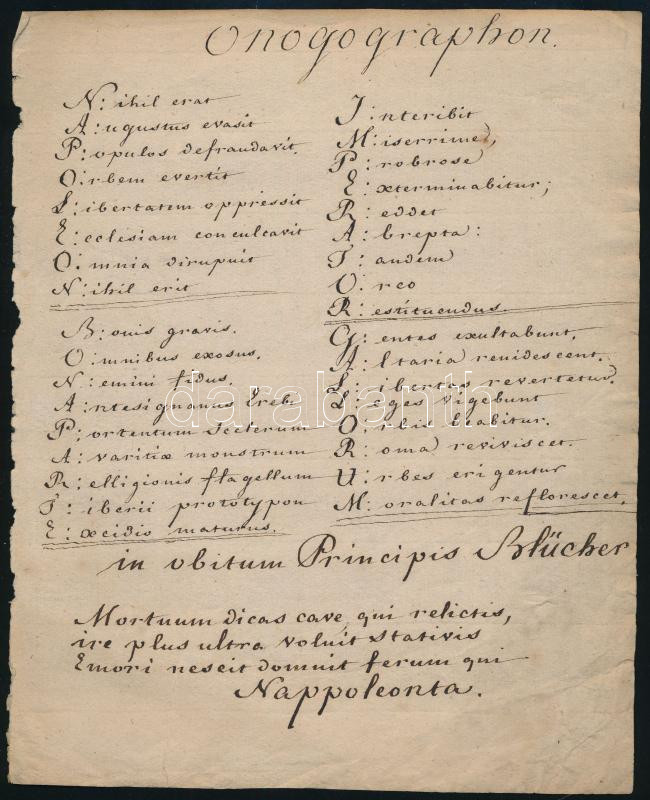 Onogographon.
N: ihil erat
A: ugustus evasit
P: opulos defraudavit.
O: rbem evertit
L: ibertatem oppressit
E: cclesiam conculcavit
O: mnia diripuit
N: ihil erit
B: onis gravis.
O: mnibus exosus.
N: emini fidus.
A: ntesignanus Erebi
P: ortentum Scelerum
A: varitiæ monstrum
R: elligionis flagellum
T: iberii prototypon
E: xcidio maturus.
I: nteribit
M: iserrime,
P: robrose
E: xterminabitur;
R: eddet
A: brepta:
T: andem
O: rco
R: estituendus.
G: entes exultabunt,
A: ltaria renidescent.
L: ibertas revertetur.
L: eges vigebunt
O: rbis beabitur.
R: oma reviviscet.
U: rbes erigentur
M: oralitas reflorescet.
in obitum Principis Blücher
Mortuum dicas cave, qui relictis,
ire plus ultra voluit stativis
Emori nescit domuit ferum qui
Nappoleonta.
darabanth